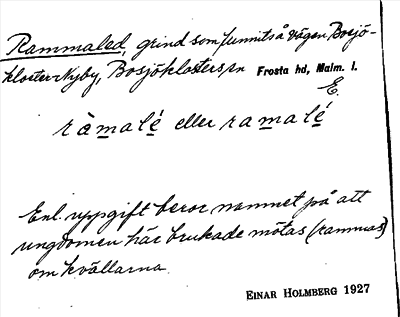 Rammaled, grind som funnits å vägen Bosjö-
kloster-Nyby, Bosjöklosters sn Frosta hd, Malm. l.
E.
ràmalé eller ramalé
Enl. uppgift beror namnet på att
ungdomen här brukade mötas (rammas)
om kvällarna
EINAR HOLMBERG 1927